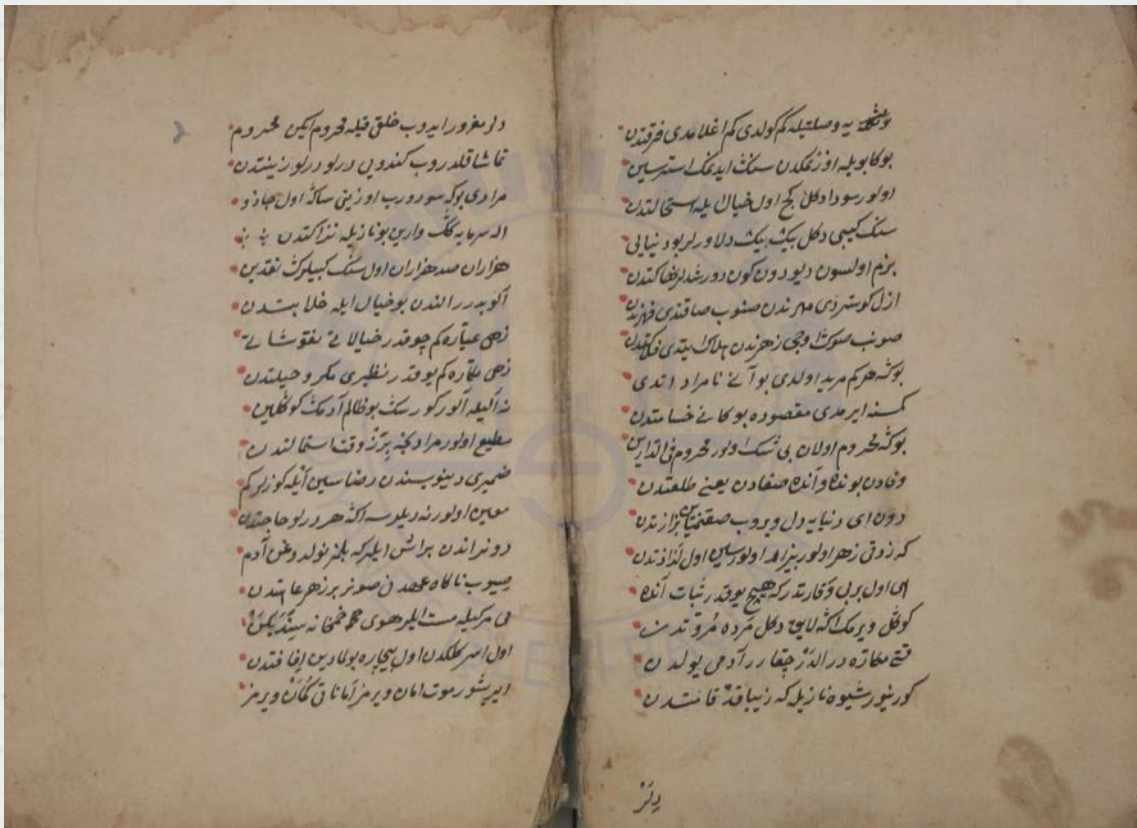 یه وصلتیله کم کولدی کم اغلامدی فرقتدن
بوکا بویله اوزنمکدن سنك ایدنمك استرسین
اولور سودا دکل کج اول خیال ایله استحالتدن
سنك کیبی دکل بیك بیك دلاورلر بو دنیایی
بزم اولسون دیو دون کون دورشدلر
ازل کوستردی مهرندن صنوب صاقندی قهرندن
صونب صوکرا وجی زهرندن هلاك یتدی
بوکه هر کم مرید اولدی بو آنی نامراد اتدی
کمسنه ایرمدی مقصوده بو کانی خسامتدن
بوکه محروم اولان بی شك اولور محروم فی الدارین
وفادن بونده و آنده صفادن یعنی طلعتدن
دون ای دنیایه دل ویروب
که ذوقی زهر اولور بیزار اولورسین اول لذاذتدن
ای اول بر بی وقارتدر که هیچ یوقدر ثبات آنده
کوکل ویرمك اکا لایق دکل مرده مروتدن
قتی مکاره در الدر چقارر آدمی یولدن
کورینور شیوه نازیله که زیبا قد قامتدن
دلر مغرور ایدوب خلق قیله محروم ایکن محروم
تماشا قلدروب کندویی درلو درلو زینتدن
مرادی بو که سودورب اوزینی ساکا اول جاذو
اله سرمایه کك دارین بو نازیله نزاکتدن
هزاران صد هزاران اول سنك کیبیلرك نقدین
آلوبدر الندن بو خیال ایله خلابتدن
زهی عیاره کم چوقدر خیالاتی نقوشاتی
زهی مکاره کم یوقدر نظیری مکر و حیلتدن
نه آلیله آلور کورسك بو ظالم آدمك کوکلین
مطیع اولور مرادکجه بر آز وقت استمالتدن
ضمیری دینوبسندن رضاسین آیله کوزلر کم
معین اولور نه دیلرسه اکا هر درلو حاجتدن
دونر اندن بر آش ایلر که بلنر نولدوغن آدم
ییوب ناکاه عهدن صونر بر زهر عادتدن
می مرکیله مست ایلر هوی خمخانه سینده
اول اسرکلکدن اول بیچاره بولادین افاقتدن
ایریشور موت امان ویرمز آمانا قی کمان ویرمز